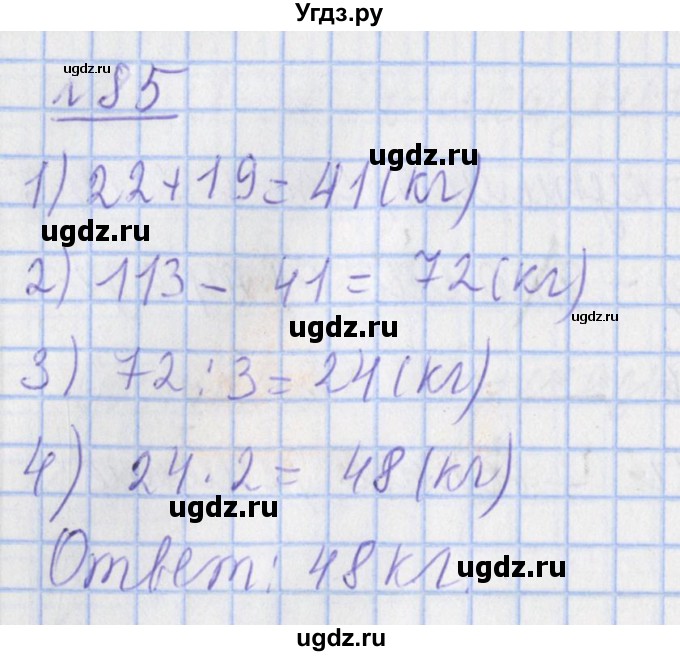 Угдз.ру
ugdz.ru
№85
ugdz.ru
1) 22+19=41(кг)
ugdz.ru
2) 113-41=72(кг)
ugdz.ru
ugdz.ru
3) 72:3=24(кг)
4) 24·2=48(кг)
ugdz.ru
Ответ: 48 кг.
ugdz.ru
ugdz.ru